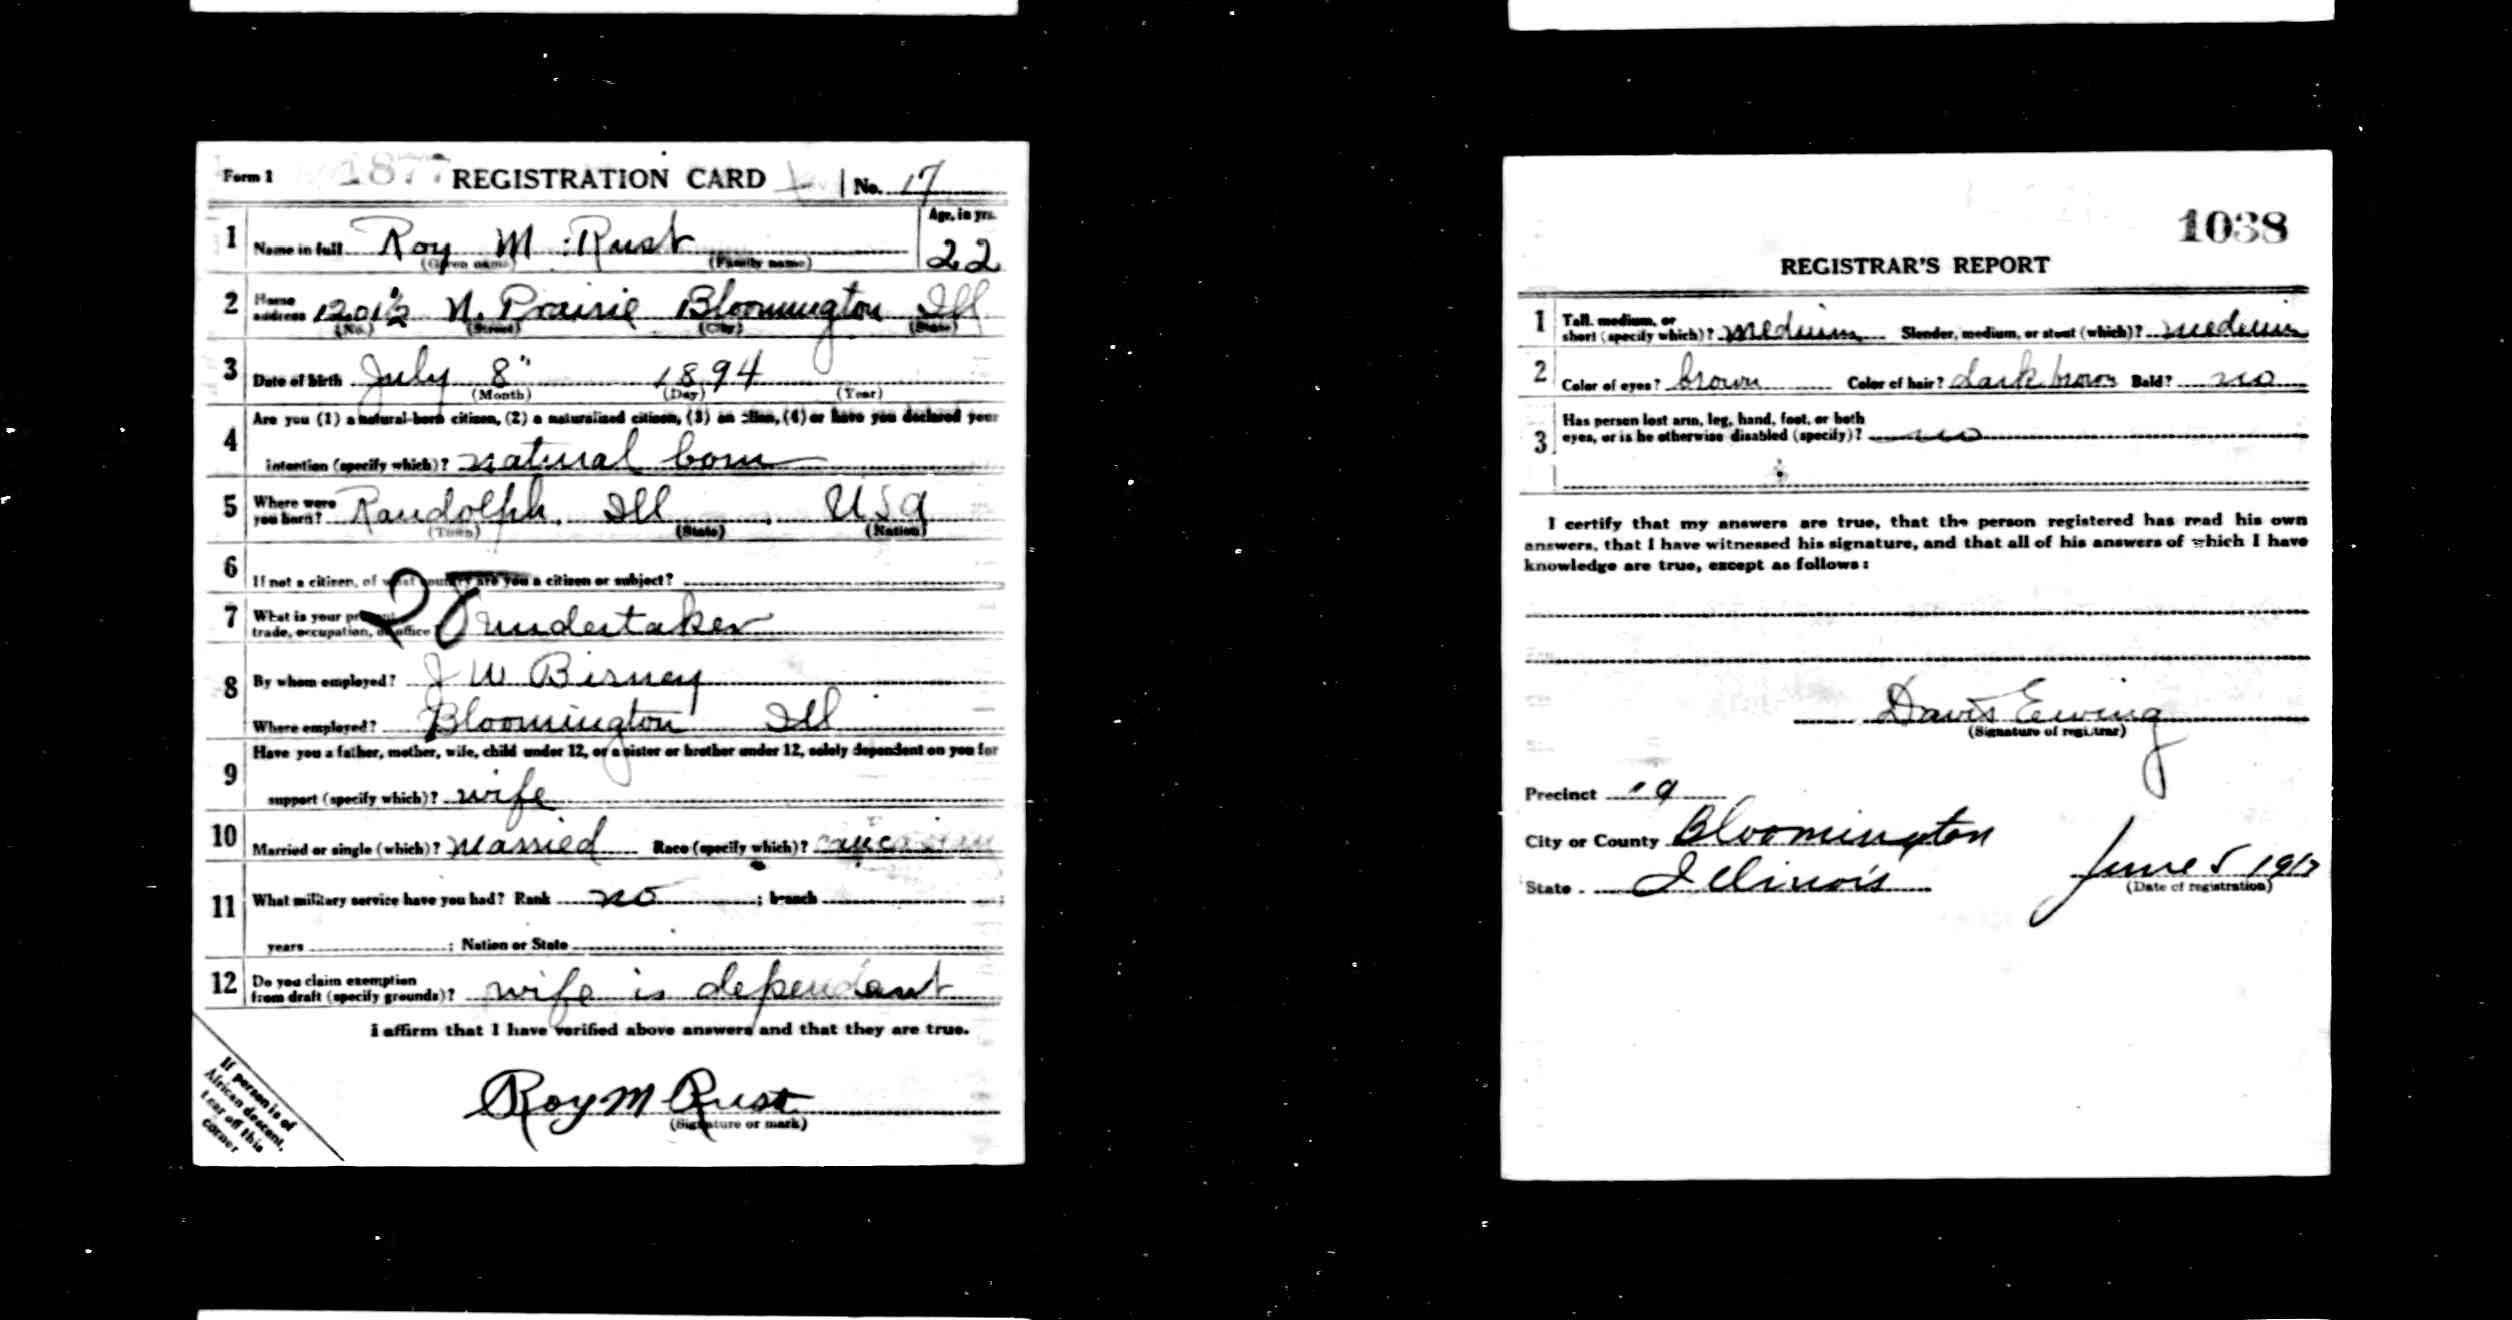 Form 1 1877 REGISTRATION CARD No. 17
1 Name in full Roy M. Rust Age, in yrs. 22
(Given name) (Family name)
2 Home address 1201½ N. Prairie Bloomington Ill
(No.) (Street) (City) (State)
3 Date of birth July 8" 1894
(Month) (Day) (Year)
Are you (1) a natural-born citizen, (2) a naturalized citizen, (3) an alien, (4) or have you declared your
4 intention (specify which)? natural born
5 Where were you born? Randolph, Ill, USA
(Town) (State) (Nation)
6 If not a citizen, of what country are you a citizen or subject?
7 What is your present
trade, occupation, or office 28 undertaker
8 By whom employed? J W Birney
Where employed? Bloomington Ill
9 Have you a father, mother, wife, child under 12, or a sister or brother under 12, solely dependent on you for
support (specify which)? wife
10 Married or single (which)? married Race (specify which)? caucasian
11 What military service have you had? Rank no ; branch
years ; Nation or State
12 Do you claim exemption
from draft (specify grounds)? wife is dependent
I affirm that I have verified above answers and that they are true.
Roy M Rust
(Signature or mark)
If person is of
African descent,
tear off this
corner
1038
REGISTRAR'S REPORT
1 Tall, medium, or
short (specify which)? medium Slender, medium, or stout (which)? medium
2 Color of eyes? brown Color of hair? dark brown Bald? no
3 Has person lost arm, leg, hand, foot, or both
eyes, or is he otherwise disabled (specify)? no
I certify that my answers are true, that the person registered has read his own
answers, that I have witnessed his signature, and that all of his answers of which I have
knowledge are true, except as follows:
Davis Ewing
(Signature of registrar)
Precinct 19
City or County Bloomington
State Illinois June 5 1917
(Date of registration)